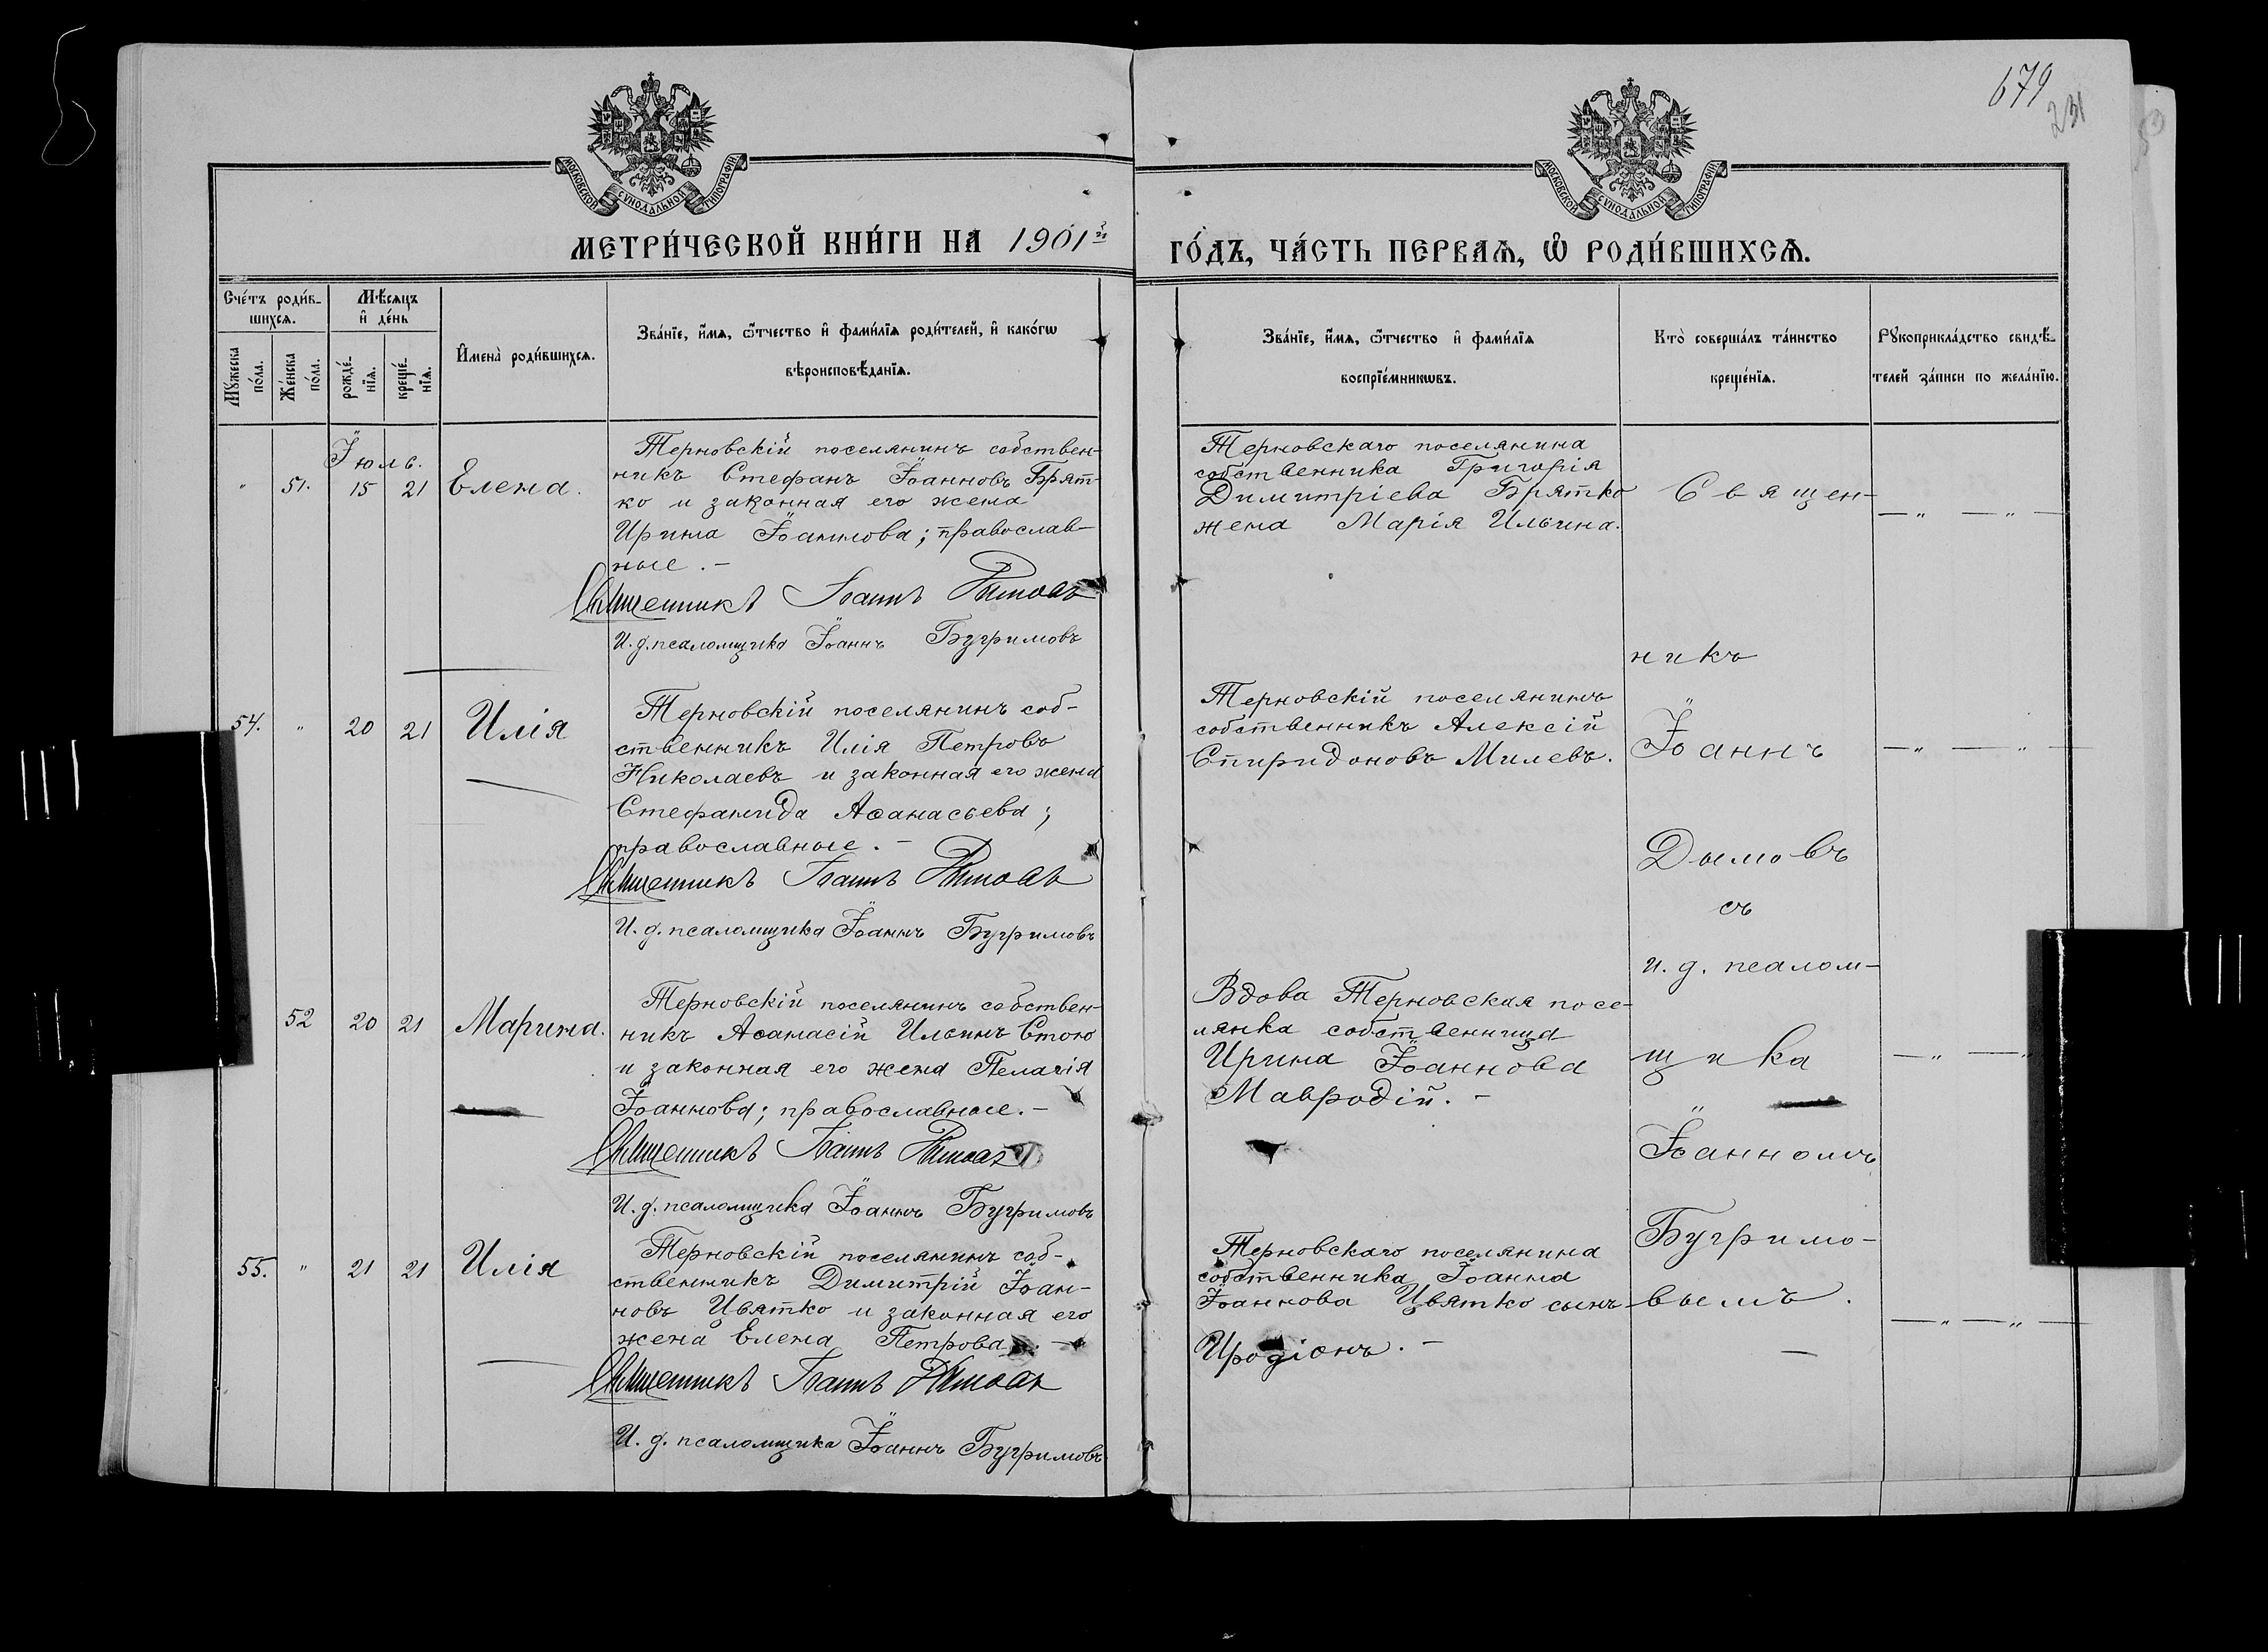 679
231
МОСКОВСКОЙ СѴНОДАЛЬНОЙ ТИПОГРАФІИ
МОСКОВСКОЙ СѴНОДАЛЬНОЙ ТИПОГРАФІИ
МЕТРИ́ЧЕСКОЙ КНИ́ГИ НА 1901й
ГО́ДЪ, ЧА́СТЬ ПЕРВАѦ, Ѡ҆ РОДИ́ВШИХСѦ.
Сче́тъ роди́в-
шихсѧ.
Мꙋ́жеска
по́ла.
Же́нска
по́ла.
Мѣ́сѧцъ
и҆ де́нь
рожде́-
нїѧ.
креще́-
нїѧ.
И҆мена̀ роди́вшихсѧ.
Зва́нїе, и҆́мѧ, ѻ҆́тчество и҆ фами́лїѧ роди́телей, и҆ како́гѡ
вѣроисповѣ́данїѧ.
Зва́нїе, и҆́мѧ, ѻ҆́тчество и҆ фами́лїѧ
воспрїе́мникѡвъ.
Кто̀ соверша́лъ та́инство
креще́нїѧ.
Рꙋкоприкла́дство свидѣ́-
телей за́писи по жела́нїю.
Іюль.
" 51. 15 21 Елена.
Терновскій поселянинъ собствен-
никъ Стефанъ Іоанновъ Брят-
ко и законная его жена
Ирина Іоаннова; православ-
ные. -
Священникъ Іоаннъ Дымовъ
И. д. псаломщика Іоаннъ Бугримовъ
Терновскаго поселянина
собственника Григорія
Димитріева Брятко
жена Марія Ильина.
— " — " —
54. " 20 21 Илія
Терновскій поселянинъ соб-
ственникъ Илія Петровъ
Николаевъ и законная его жена
Стефанида Аѳанасьева;
православные. -
Священникъ Іоаннъ Дымовъ
И. д. псаломщика Іоаннъ Бугримовъ
Терновскій поселянинъ
собственникъ Алексій
Спиридоновъ Милевъ.
— " — " —
52 20 21 Марина.
Терновскій поселянинъ собствен-
никъ Аѳанасій Ильинъ Стою
и законная его жена Пелагія
Іоаннова; православные. -
Священникъ Іоаннъ Дымовъ
И. д. псаломщика Іоаннъ Бугримовъ
Вдова Терновская посе-
лянка собственница
Ирина Іоаннова
Мавродій. -
— " — "
55. " 21 21 Илія
Терновскій поселянинъ соб-
ственникъ Димитрій Іоан-
новъ Цвятко и законная его
жена Елена Петрова. -
Священникъ Іоаннъ Дымовъ
И. д. псаломщика Іоаннъ Бугримовъ
Терновскаго поселянина
собственника Іоанна
Іоаннова Цвятко сынъ
Иродіонъ. -
— " — " —
Священ-
никъ
Іоаннъ
Дымовъ
съ
и. д. псалом-
щика
Іоанномъ
Бугримо-
вымъ.